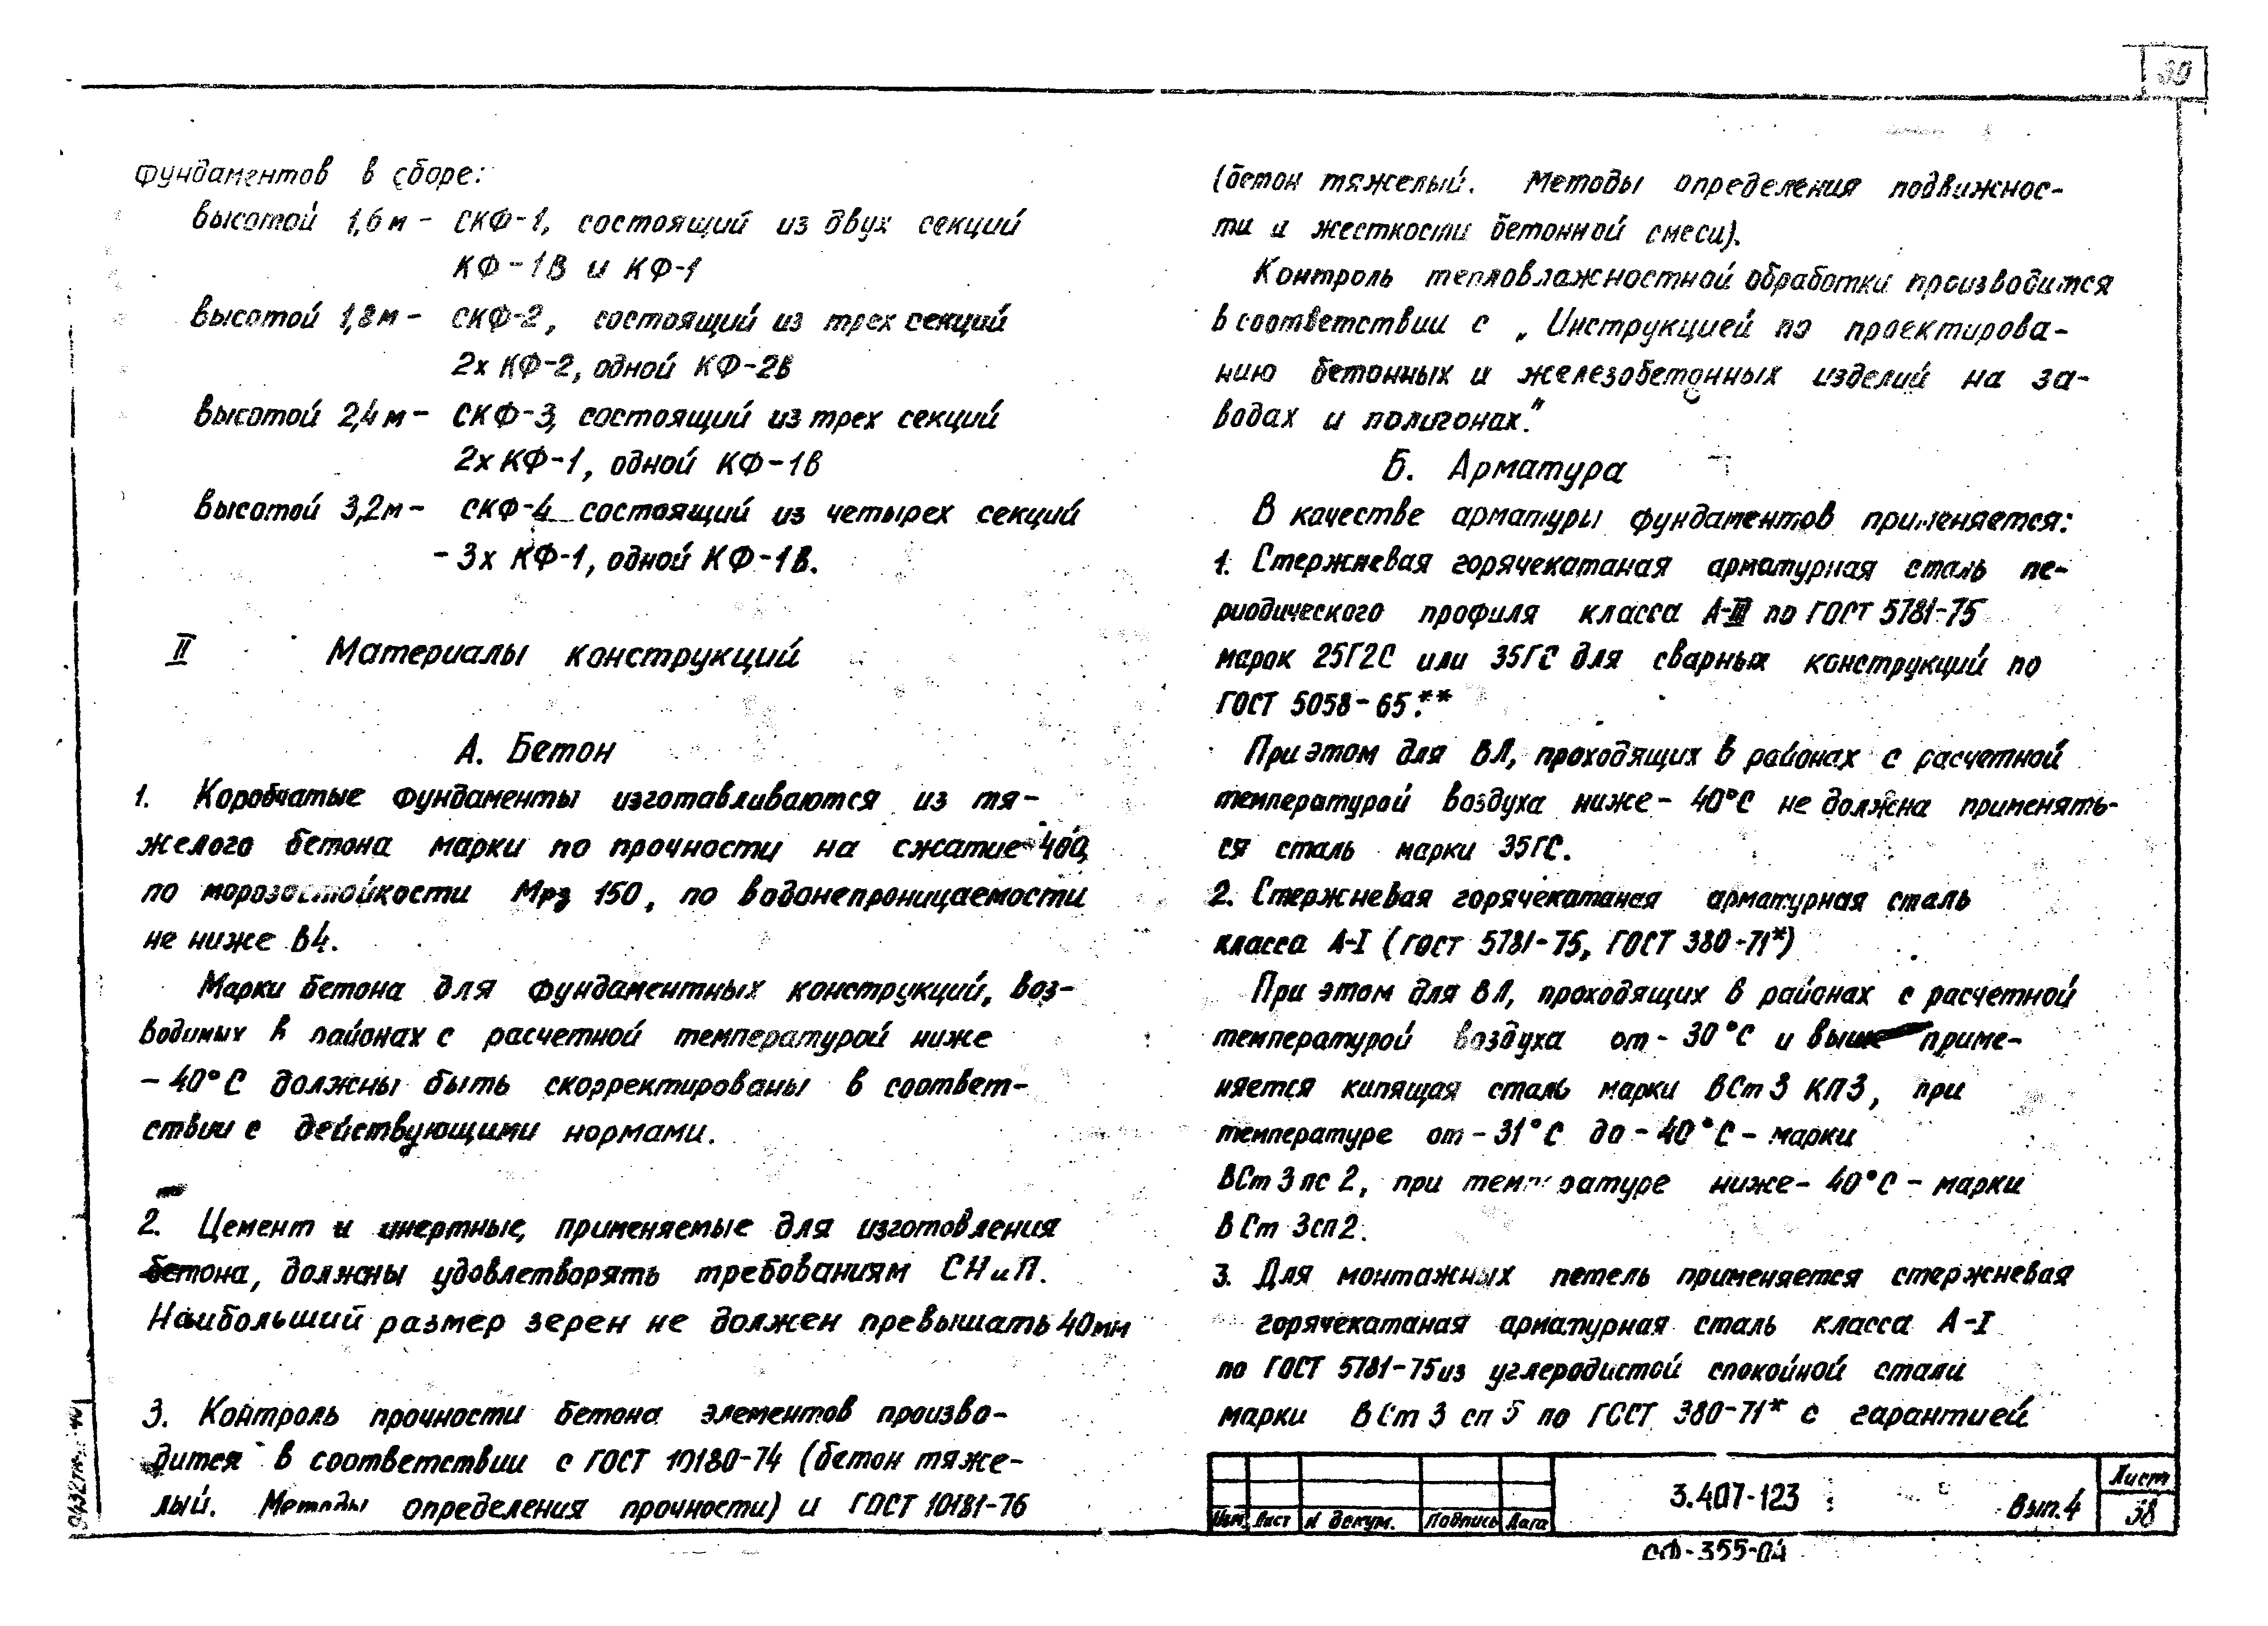 30
фундаментов в сборе:
высотой 1,6 м - СКФ-1, состоящий из двух секций
КФ-1В и КФ-1
высотой 1,8м - СКФ-2, состоящий из трех секций
2х КФ-2, одной КФ-2В
высотой 2,4 м - СКФ-3, состоящий из трех секций
2х КФ-1, одной КФ-1В
высотой 3,2м - СКФ-4 состоящий из четырех секций
- 3х КФ-1, одной КФ-1В.
II Материалы конструкций
А. Бетон
1. Коробчатые фундаменты изготавливаются из тя-
желого бетона марки по прочности на сжатие 400,
по морозостойкости Мрз 150, по водонепроницаемости
не ниже В4.
Марки бетона для фундаментных конструкций, воз-
водимых в районах с расчетной температурой ниже
- 40°С должны быть скорректированы в соответ-
ствии с действующими нормами.
2. Цемент и инертные, применяемые для изготовления
бетона, должны удовлетворять требованиям СНиП.
Наибольший размер зерен не должен превышать 40мм
3. Контроль прочности бетона элементов произво-
дится в соответствии с ГОСТ 10180-74 (бетон тяже-
лый. Методы определения прочности) и ГОСТ 10181-76
(бетон тяжелый. Методы определения подвижнос-
ти и жесткости бетонной смеси).
Контроль тепловлажностной обработки производится
в соответствии с „Инструкцией по проектирова-
нию бетонных и железобетонных изделий на за-
водах и полигонах."
Б. Арматура
В качестве арматуры фундаментов применяется:
1. Стержневая горячекатаная арматурная сталь пе-
риодического профиля класса А-III по ГОСТ 5781-75
марок 25Г2С или 35ГС для сварных конструкций по
ГОСТ 5058-65.**
При этом для ВЛ, проходящих в районах с расчетной
температурой воздуха ниже - 40°С не должна применять-
ся сталь марки 35ГС.
2. Стержневая горячекатаная арматурная сталь
класса А-I (ГОСТ 5781-75, ГОСТ 380-71*)
При этом для ВЛ, проходящих в районах с расчетной
температурой воздуха от - 30°С и выше приме-
няется кипящая сталь марки ВСт 3 КП3, при
температуре от - 31°С до - 40°С - марки
ВСт 3 пс 2, при температуре ниже - 40°С - марки
ВСт 3сп2.
3. Для монтажных петель применяется стержневая
горячекатаная арматурная сталь класса А-I
по ГОСТ 5781-75 из углеродистой спокойной стали
марки ВСт 3 сп 5 по ГОСТ 380-71* с гарантией
Изм. Лист N докум. Подпись Дата
3.407-123 Вып.4
Лист
38
СФ-355-04